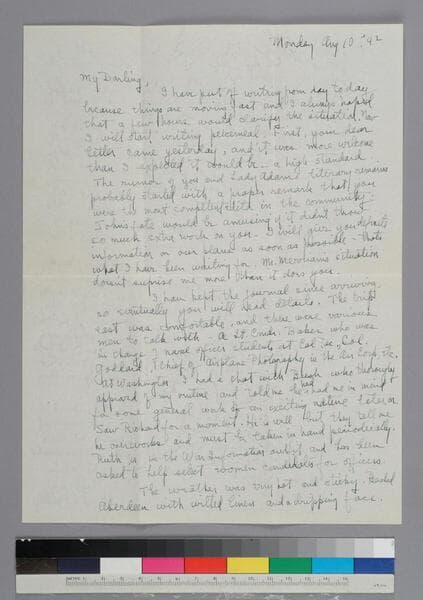 Monday Aug 10 '42
My Darling,
I have put off writing from day to day
because things are moving fast and I always hoped
that a few hours would clarify the situation. Now
I will start writing piecemeal. First, your dear
letter came yesterday, and it was more welcome
than I expected it would be — a high standard.
The rumor of you and Lady Adams' literary
probably started with a proper remark that you
were the most completely in the community.
John's fate would be amusing if it didn't throw
so much extra work on you. I will give you definite
information on our plans as soon as possible — that's
what I have been waiting for. Mr. Merriam's situation
doesn't surprise me more than it does you.
I have kept the journal since arriving,
so eventually you will read details. The trip
east was comfortable, and there were various
men to talk with — a Lt. Cmdr. Baker who was
in charge of naval officer students at Cal Tec, Col.
Goddard, chief of Airplane Photography in the Air Corps, etc.
At Washington I had a chat with who thoroughly
approved of my outline and told me he had me in mind
for some general work of an exciting nature later on.
Saw Richard for a moment. He is well but they tell me
he overworks and must be taken in hand periodically.
Ruth is in the War Information outfit, and has been
asked to help select women candidates for officers.
The weather was very hot and sticky. Reached
Aberdeen with wilted linens and a dripping face.